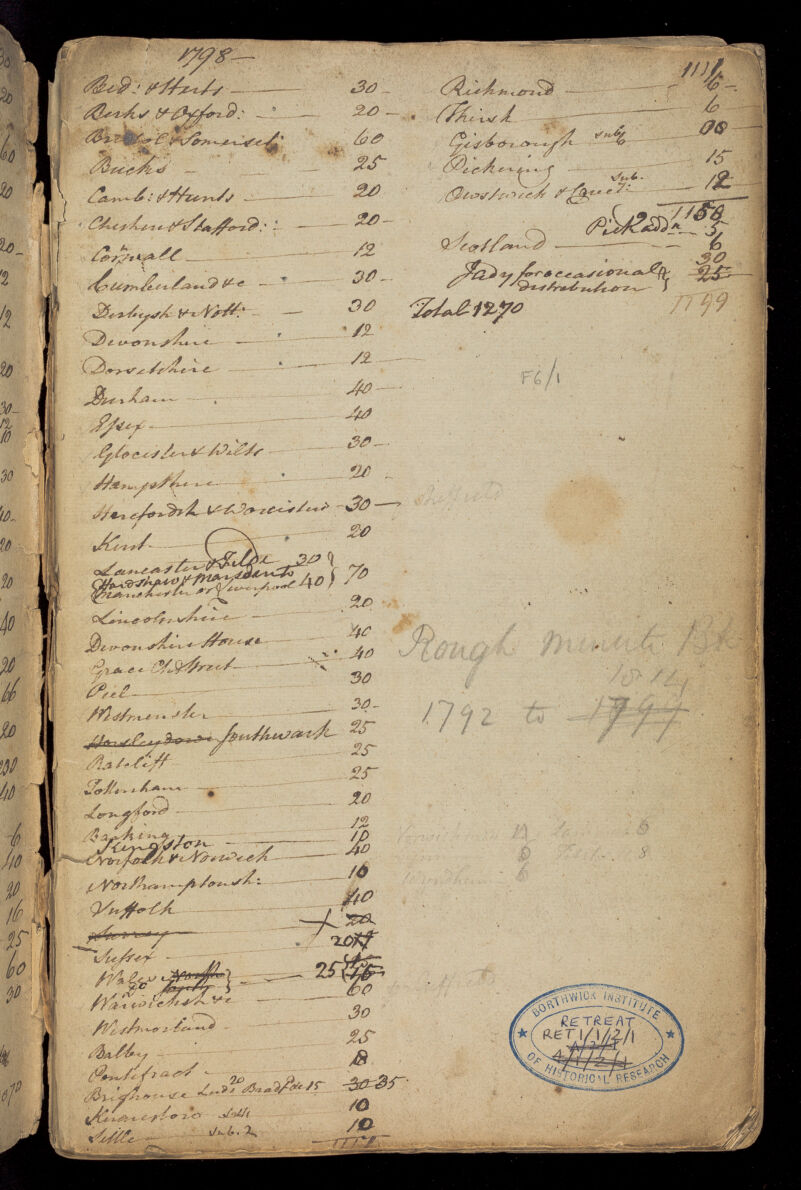 1798
Bed: & Herts 30
Berks & Oxford: 20
Bristol & Somerset 60
Bucks 25
Camb: & Hunts 20
Cheshire & Stafford: 20
Cornwall 12
Cumberland &c 30
Derbysh & Nott: 30
Devonshire 12
Dorsetshire 12
Durham 40
Essex 40
Glocester & Wilts 30
Hampshire 20
Herefordsh & Worcister 30
Kent 20
Lancaster & Filde 30
Hardshaw & Marsden to } 70
Manchester or Liverpool 40
Lincolnshire 20
Devonshire House 40
Grace Ch: Street 40
Peel 30
Westminster 30
Horsleydown Southwark 25
Ratcliff 25
Tottenham 25
Longford 20
Barking 12
Kingston 10
Norfolk & Norwich 40
Northamptonsh: 10
Suffolk 40
Surrey 20
Sussex 20
Wales North 25
South
Warwicksh &c 60
Westmorland 30
Balby 25
Pontefract 18
Brighouse Leeds 20 Bradf &c 15 30 35
Knaresboro 10
Settle sub. 2 10
1111
Richmond 6
Thirsk 6
Gisborough sub 6 00
Pickering 15
Owstwick & Cave: sub. 12
1150
Pick addn 5
Scotland 6
30
Jady for occasional 25
distribution
Total 1270
1199
F6/1
Sheffield
Rough minute Bk
1814
1792 to 1797
BORTHWICK INSTITUTE
RETREAT
RET 1/1/2/1
A/2/1
A/1/2/1
OF HISTORICAL RESEARCH